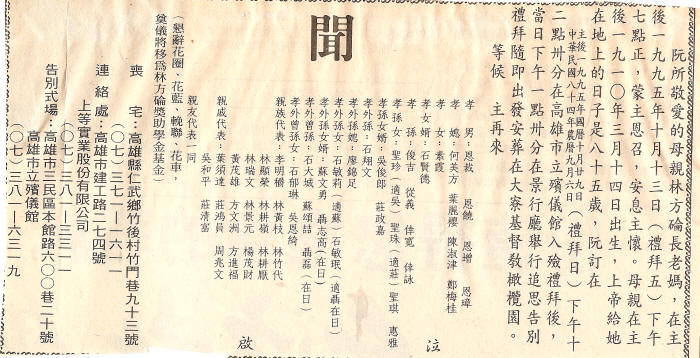 阮所敬愛的母親林方錀長老媽，在主
後一九九五年十月十三日（禮拜五）下午
七點正，蒙主恩召，安息主懷。母親在主
後一九一○年三月十四日出生，上帝給她
在地上的日子是八十五歲，阮訂在
主後一九九五年國曆十月廿九日
中華民國八十四年農曆九月六日（禮拜日）下午十
二點卅分在高雄市立殯儀館入殮禮拜後，
當日下午一點卅分在景行廳舉行追思告別
禮拜隨即出發安葬在大寮基督敎橄欖園。
等候 主再來
泣
孝男：恩裁 恩饒 恩增 恩暐
孝媳：何美方 葉麗櫻 陳淑津 鄭梅桂
孝女：素霞
孝女婿：石賢德
孝孫：俊吉 從義 倖寬 倖詠
孝孫女：聖珍（適吳）聖珠（適莊）聖琪 惠雅
孝孫女婿：吳俊郎 莊政嘉
孝外孫：石翔文
孝外孫媳：廖錦足
孝外孫女：石敏莉（適蘇）石敏珉（適聶在日）
孝外孫婿：蘇文勇 聶志高（在日）
孝外曾孫：石大城 蘇頌喆 聶磊（在日）
孝外曾孫女：石郁琳 吳恩綺
聞
親族代表：李明礦 林黃枝 林竹代
林顯榮 林耕嶺 林耕厭
林瑞文 林景元 楊茂財
黃茂雄 方文洲 方進福
親戚代表：葉須達 莊鴻員 周兆文
吳和平 莊清富
親友代表一同
啟
（懇辭花圈、花藍、輓聯、花車，
奠儀將移為林方錀獎助學金基金）
喪宅：高雄縣仁武鄉竹後村竹門巷九十三號
（○七）三七一－一六一一
連絡處：高雄市建工路二七四號
上等實業股份有限公司
（○七）三八一－三三一一
告別式場：高雄市三民區本館路六○○巷二十號
高雄市立殯儀館
（○七）三八一－六三一九